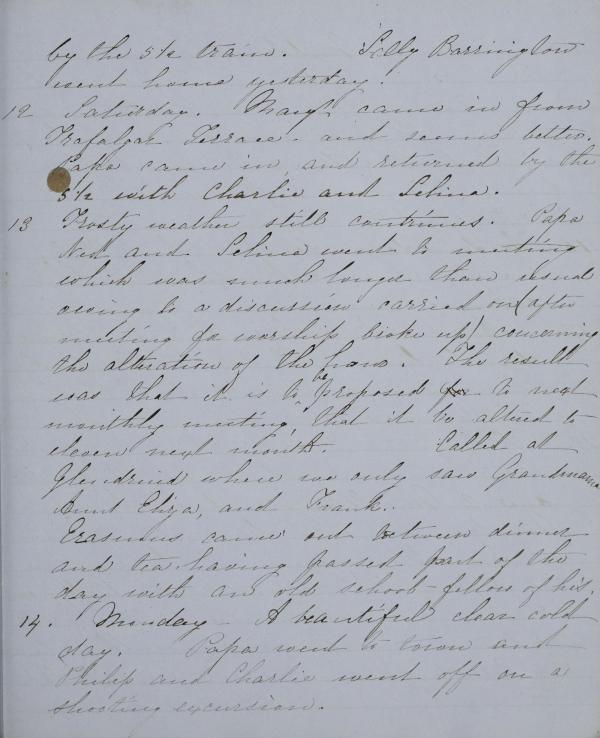 by the 5½ train. Lilly Barrington
went home yesterday.
12 Saturday. Mary came in from
Trafalgar Terrace - and seems better.
Papa came in and returned by the
5½ with Charlie and Selina.
13 Frosty weather still continues. Papa
Ned and Selina went to meeting
which was much longer than usual
owing to a discussion carried on (after
meeting for worship broke up) concerning
the alteration of the hour. The result
was that it is to be proposed to next
monthly meeting, that it be altered to
eleven next month. Called at
Glendruid where we only saw Grandmama
Aunt Eliza, and Frank.
Erasmus came out between dinner
and tea having passed part of the
day with an old school-fellow of his.
14. Monday - A beautiful clear cold
day. Papa went to town and
Philip and Charlie went off on a
shooting excursion.